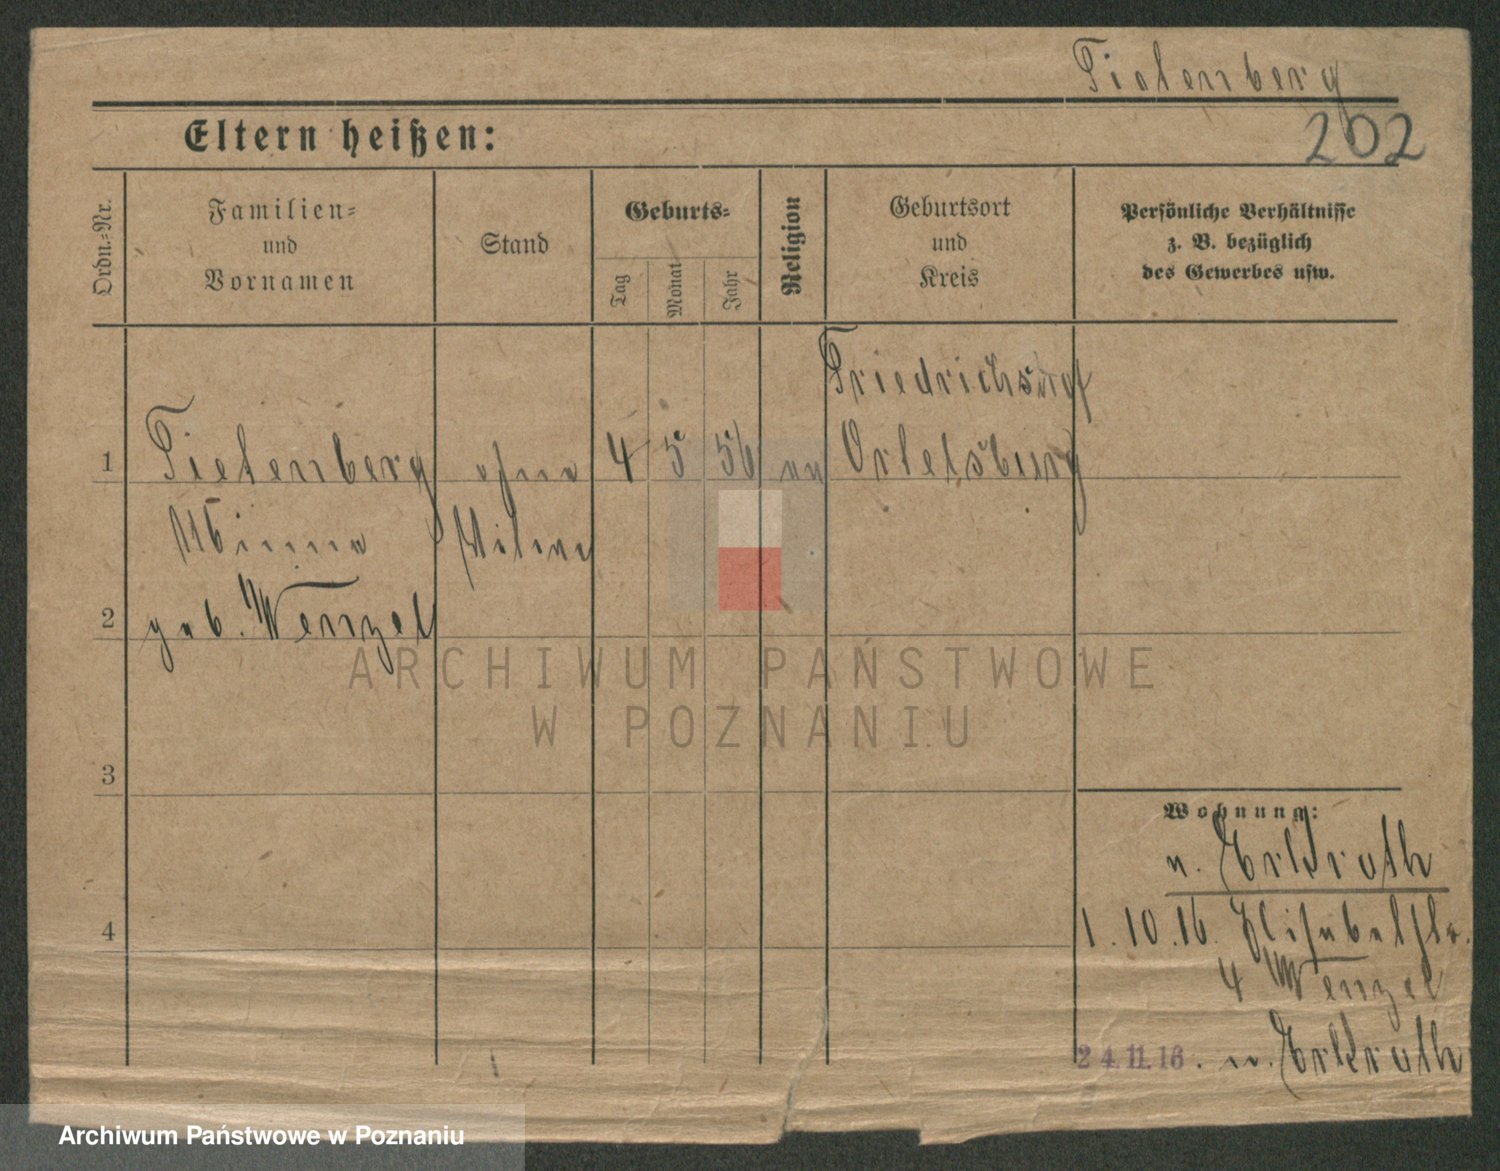 Tietenberg
202
Eltern heißen:
Ordn.=Nr.
Familien=
und
Vornamen
Stand
Geburts=
Tag
Monat
Jahr
Religion
Geburtsort
und
Kreis
Persönliche Verhältnisse
z. B. bezüglich
des Gewerbes usw.
Friedrichshof
1 Tietenberg ohne 4 5 56 Ortelsburg
Minna
2 geb. Wenzel
ARCHIWUM PAŃSTWOWE
W POZNANIU
3
Wohnung:
n. Erkrath
4
1.10.16. Elisabethstr.
4 Wenzel
24.11.16. n. Erkrath
Archiwum Państwowe w Poznaniu